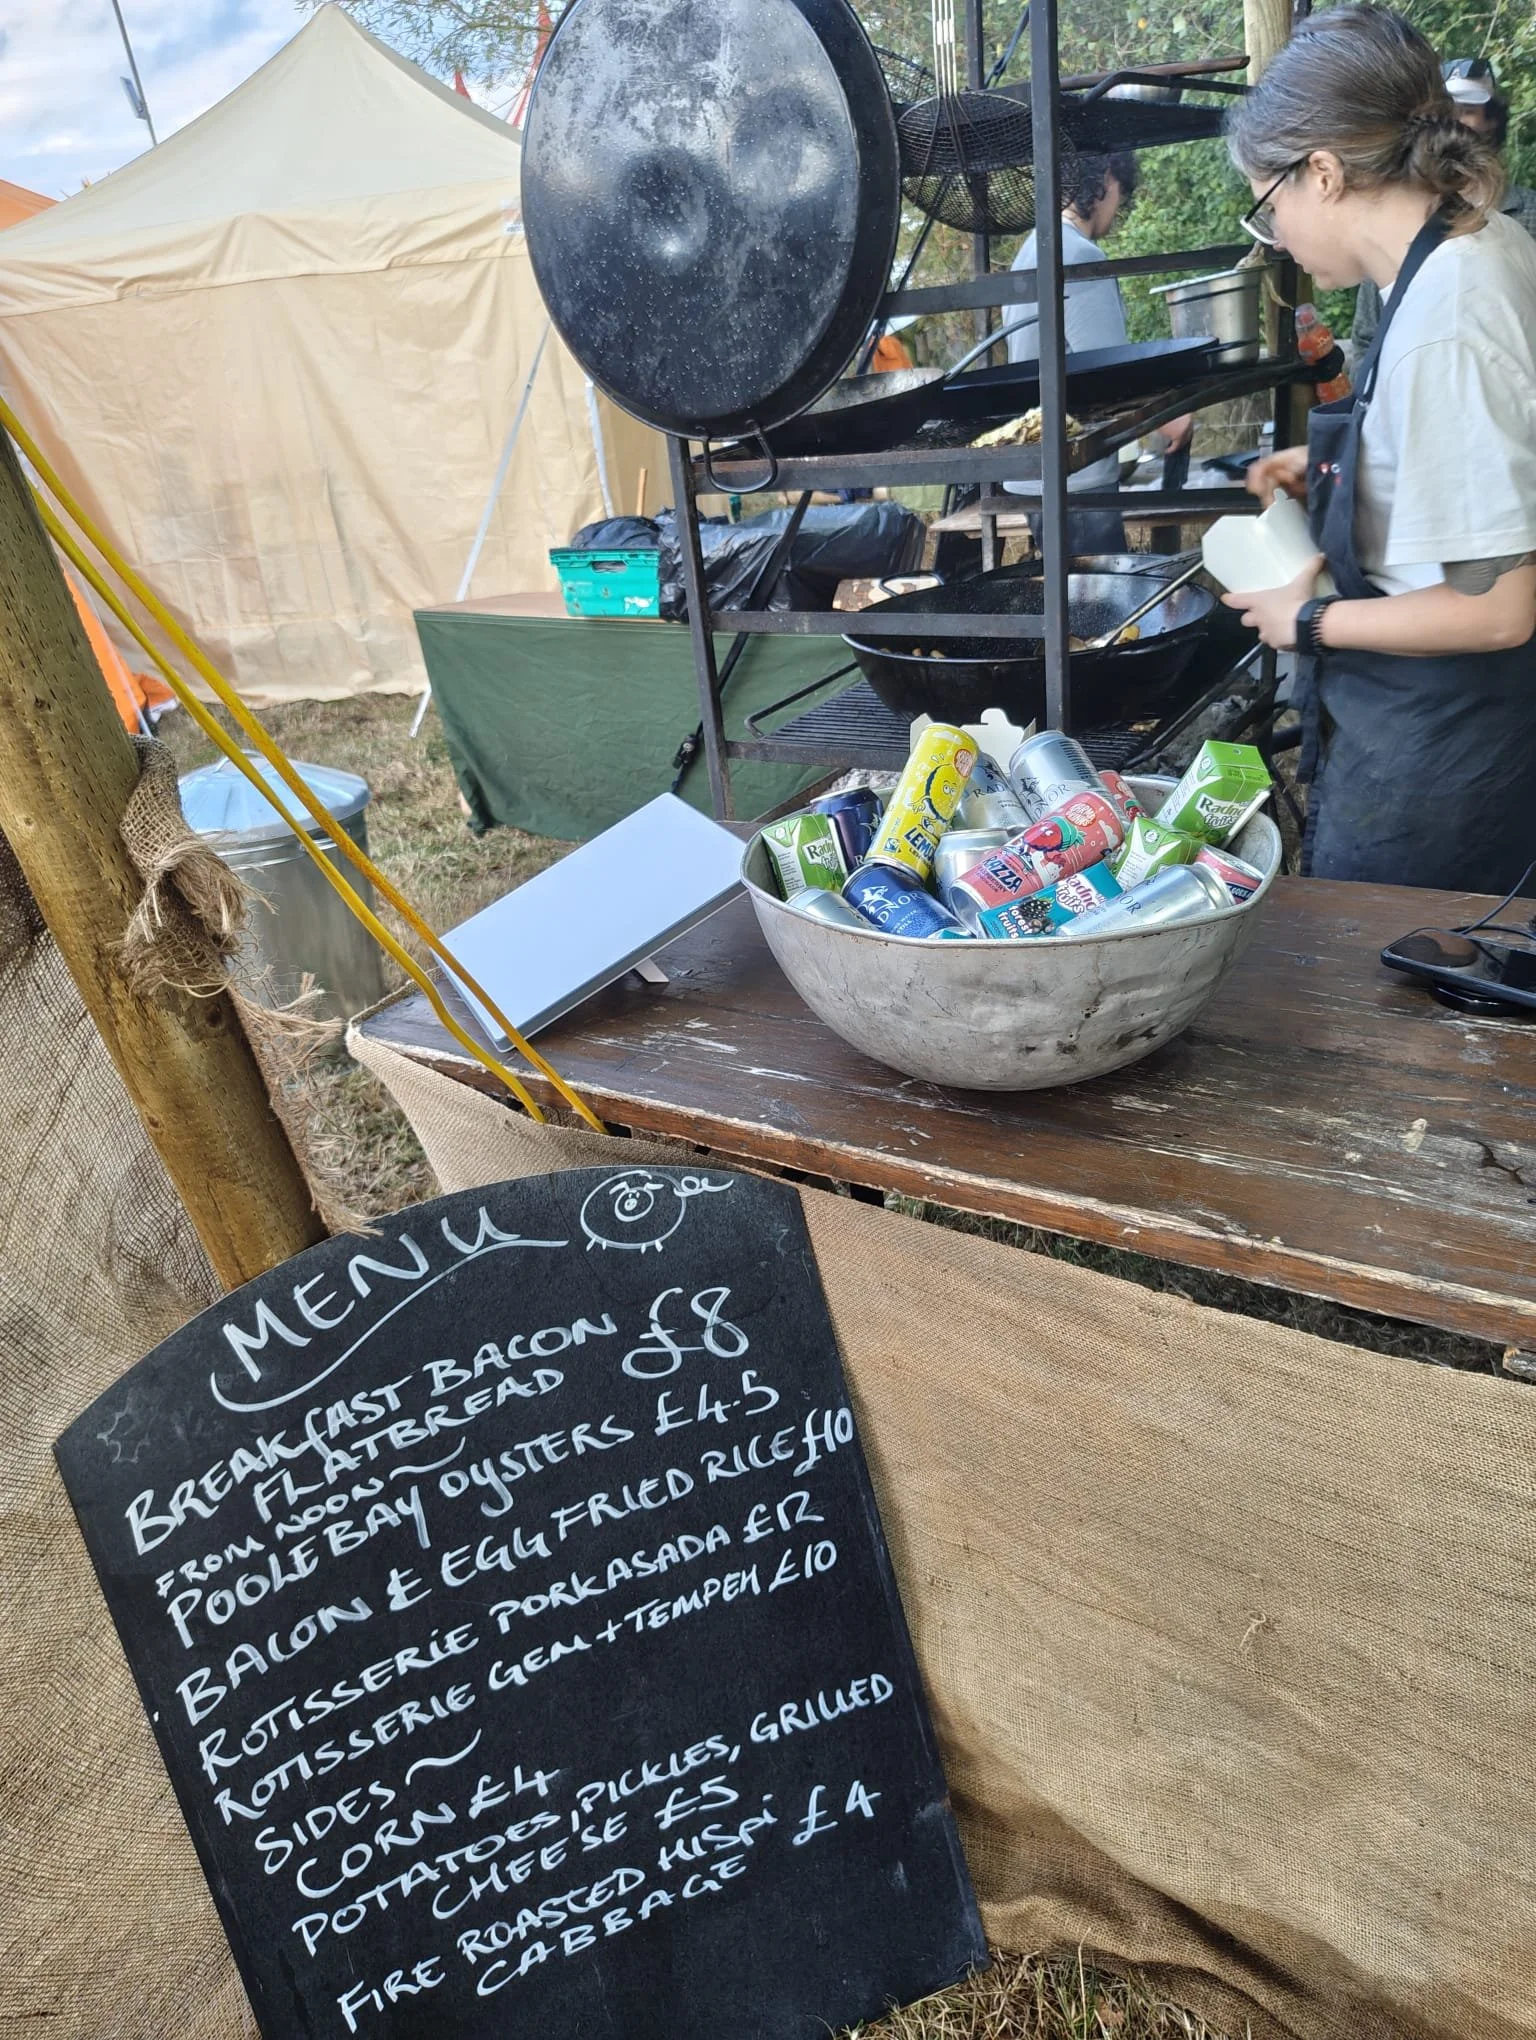 LEMO
RADNOR
NOR
Radno
fruits
Radn
RAZZA
RADNOR
Radnor
fruits
forest
fruits
NOR
MENU
BREAKFAST BACON £8
FLATBREAD
FROM NOON
POOLE BAY OYSTERS £4.5
BACON & EGG FRIED RICE £10
ROTISSERIE PORKASADA £12
ROTISSERIE GEM + TEMPEH £10
SIDES
CORN £4
POTATOES, PICKLES, GRILLED
CHEESE £5
FIRE ROASTED HISPI £4
CABBAGE